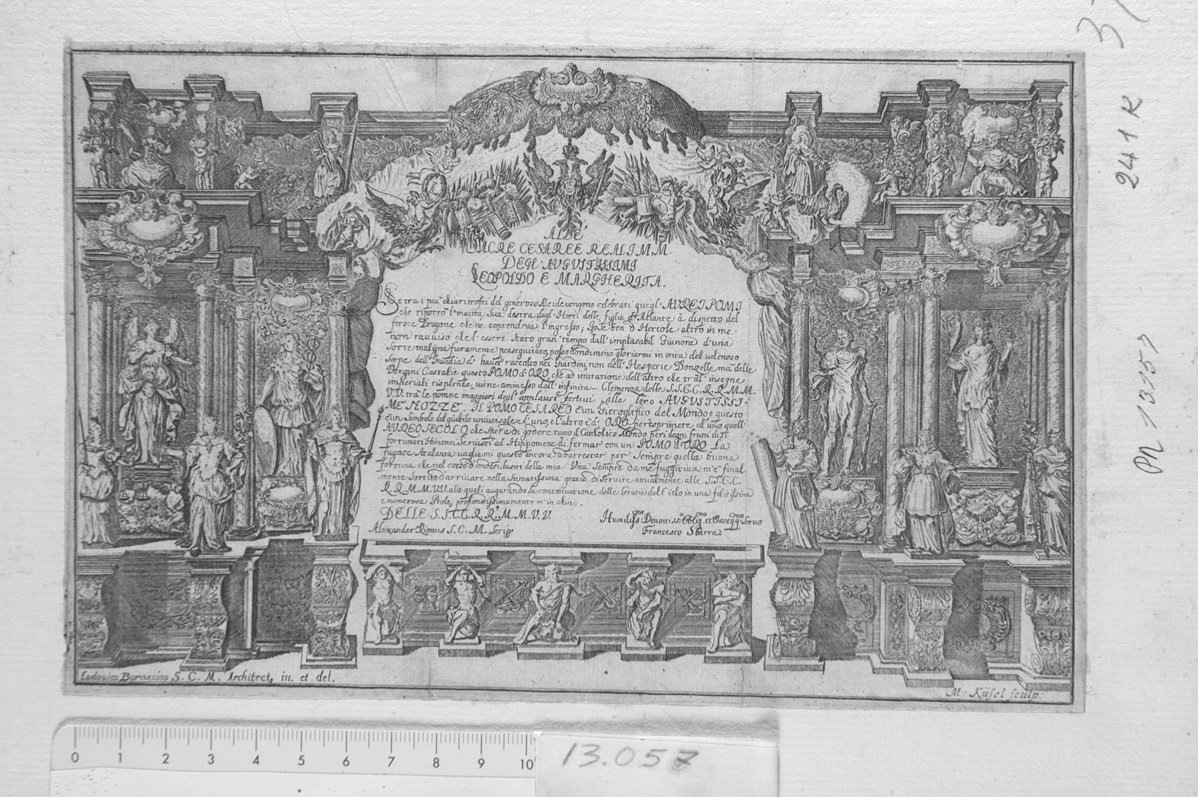 ALLE
SACRE CESAREE REALI M.M.
DEGL' AUGUSTISSIMI
LEOPOLDO E MARGHERITA.
Se tra i piu' chiari trofei del generoso Alcide vengono celebrati quegl' AUREI POMI
che riportò l'invitta Sua destra dagl' Horti delle figlie d'Atlante à dispetto del
feroce Dragone che ne contendeva l'ingresso; Io se ben d' Hercole altro in me
non raviso che l'essere stato gran' tempo dall' implacabil Giunone d'una
Sorte maligna fieramente perseguitato, posso nondimeno gloriarmi in onta del velenoso
Serpe dell' Invidia d' haver raccolto nei Giardini non dell' Hesperie Donzelle, ma delle
Vergini Castalie questo POMO D'ORO, che ad imitatione dell' altro che trall' insegne
imperiali risplende, viene ammesso dall' infinita Clemenza delle S.S.C.C. R.R. M.M.
V.V. tra le pompe maggiori degl' applausi festivi alle loro AUGUSTISSI-
ME NOZZE. IL POMO CESAREO è un Gieroglifico del Mondo, e questo
è un Simbolo del giubilo universale
AUREO SECOLO che spera di godere tutto il Cattolico Mondo
fortunati Himenei. Servissi ad Hippomene di fermar con un POMO D'ORO La
fugace Atalanta, vagliami questo ancora ad arrestar per Sempre quella buona
fortuna che nel corso della mia Vita Sempre da me fuggitiva m'è final-
mente Sortito d'arrivare nella Stimatissima gratia di Servire attualmente alle S.S.C.C.
R.R.M.M.V.V. alle quali augurando la continuatione delle Gratie del Cielo in una felicissima
e numerosa Prole, profondissimamente m'inchino.
DELLE S.S.C.C.R.R.M.M.V.V.
Humiliss.mo Devotiss.o Oblig.mo et Osseqq.mo Servo
Alexander Romus S.C.M. Scrip.
Francesco Sbarra
Lodovico Burnacino S. C. M. Architect, in. et del.
M. Küsel sculp.
241 R
PN 13757
0 1 2 3 4 5 6 7 8 9 10
13.057